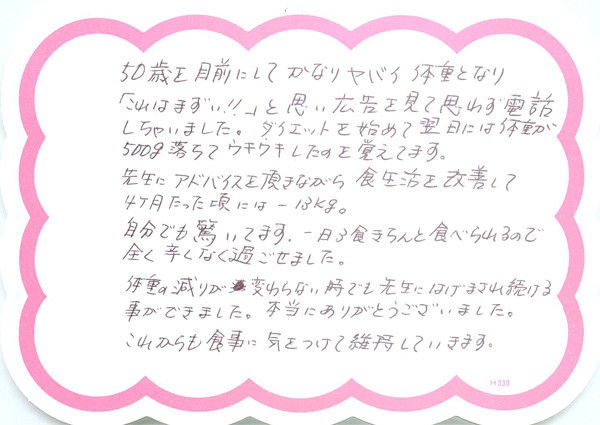 50歳を目前にしてかなりヤバイ体重となり
「これはまずい!!」と思い広告を見て思わず電話
しちゃいました。ダイエットを始めて翌日には体重が
500g落ちてウキウキしたのを覚えてます。
先生にアドバイスを頂きながら食生活を改善して
4ヶ月たった頃には-13kg。
自分でも驚いてます。一日3食きちんと食べられるので
全く辛くなく過ごせました。
体重の減りが変わらない時でも先生にはげまされ続ける
事ができました。本当にありがとうございました。
これからも食事に気をつけて維持していきます。
H335